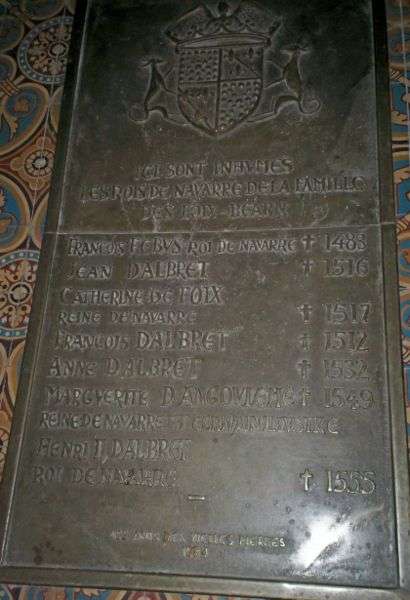 ICI SONT INHUMES
LES ROIS DE NAVARRE DE LA FAMILLE
DES FOIX-BEARN
FRANÇOIS FEBUS ROI DE NAVARRE † 1483
JEAN D'ALBRET † 1516
CATHERINE DE FOIX
REINE DE NAVARRE † 1517
FRANÇOIS D'ALBRET † 1512
ANNE D'ALBRET † 1532
MARGVERITE D'ANGOVLEME † 1549
REINE DE NAVARRE ET
HENRI II D'ALBRET
ROI DE NAVARRE † 1555
LES AMIS DES VIEILLES PIERRES